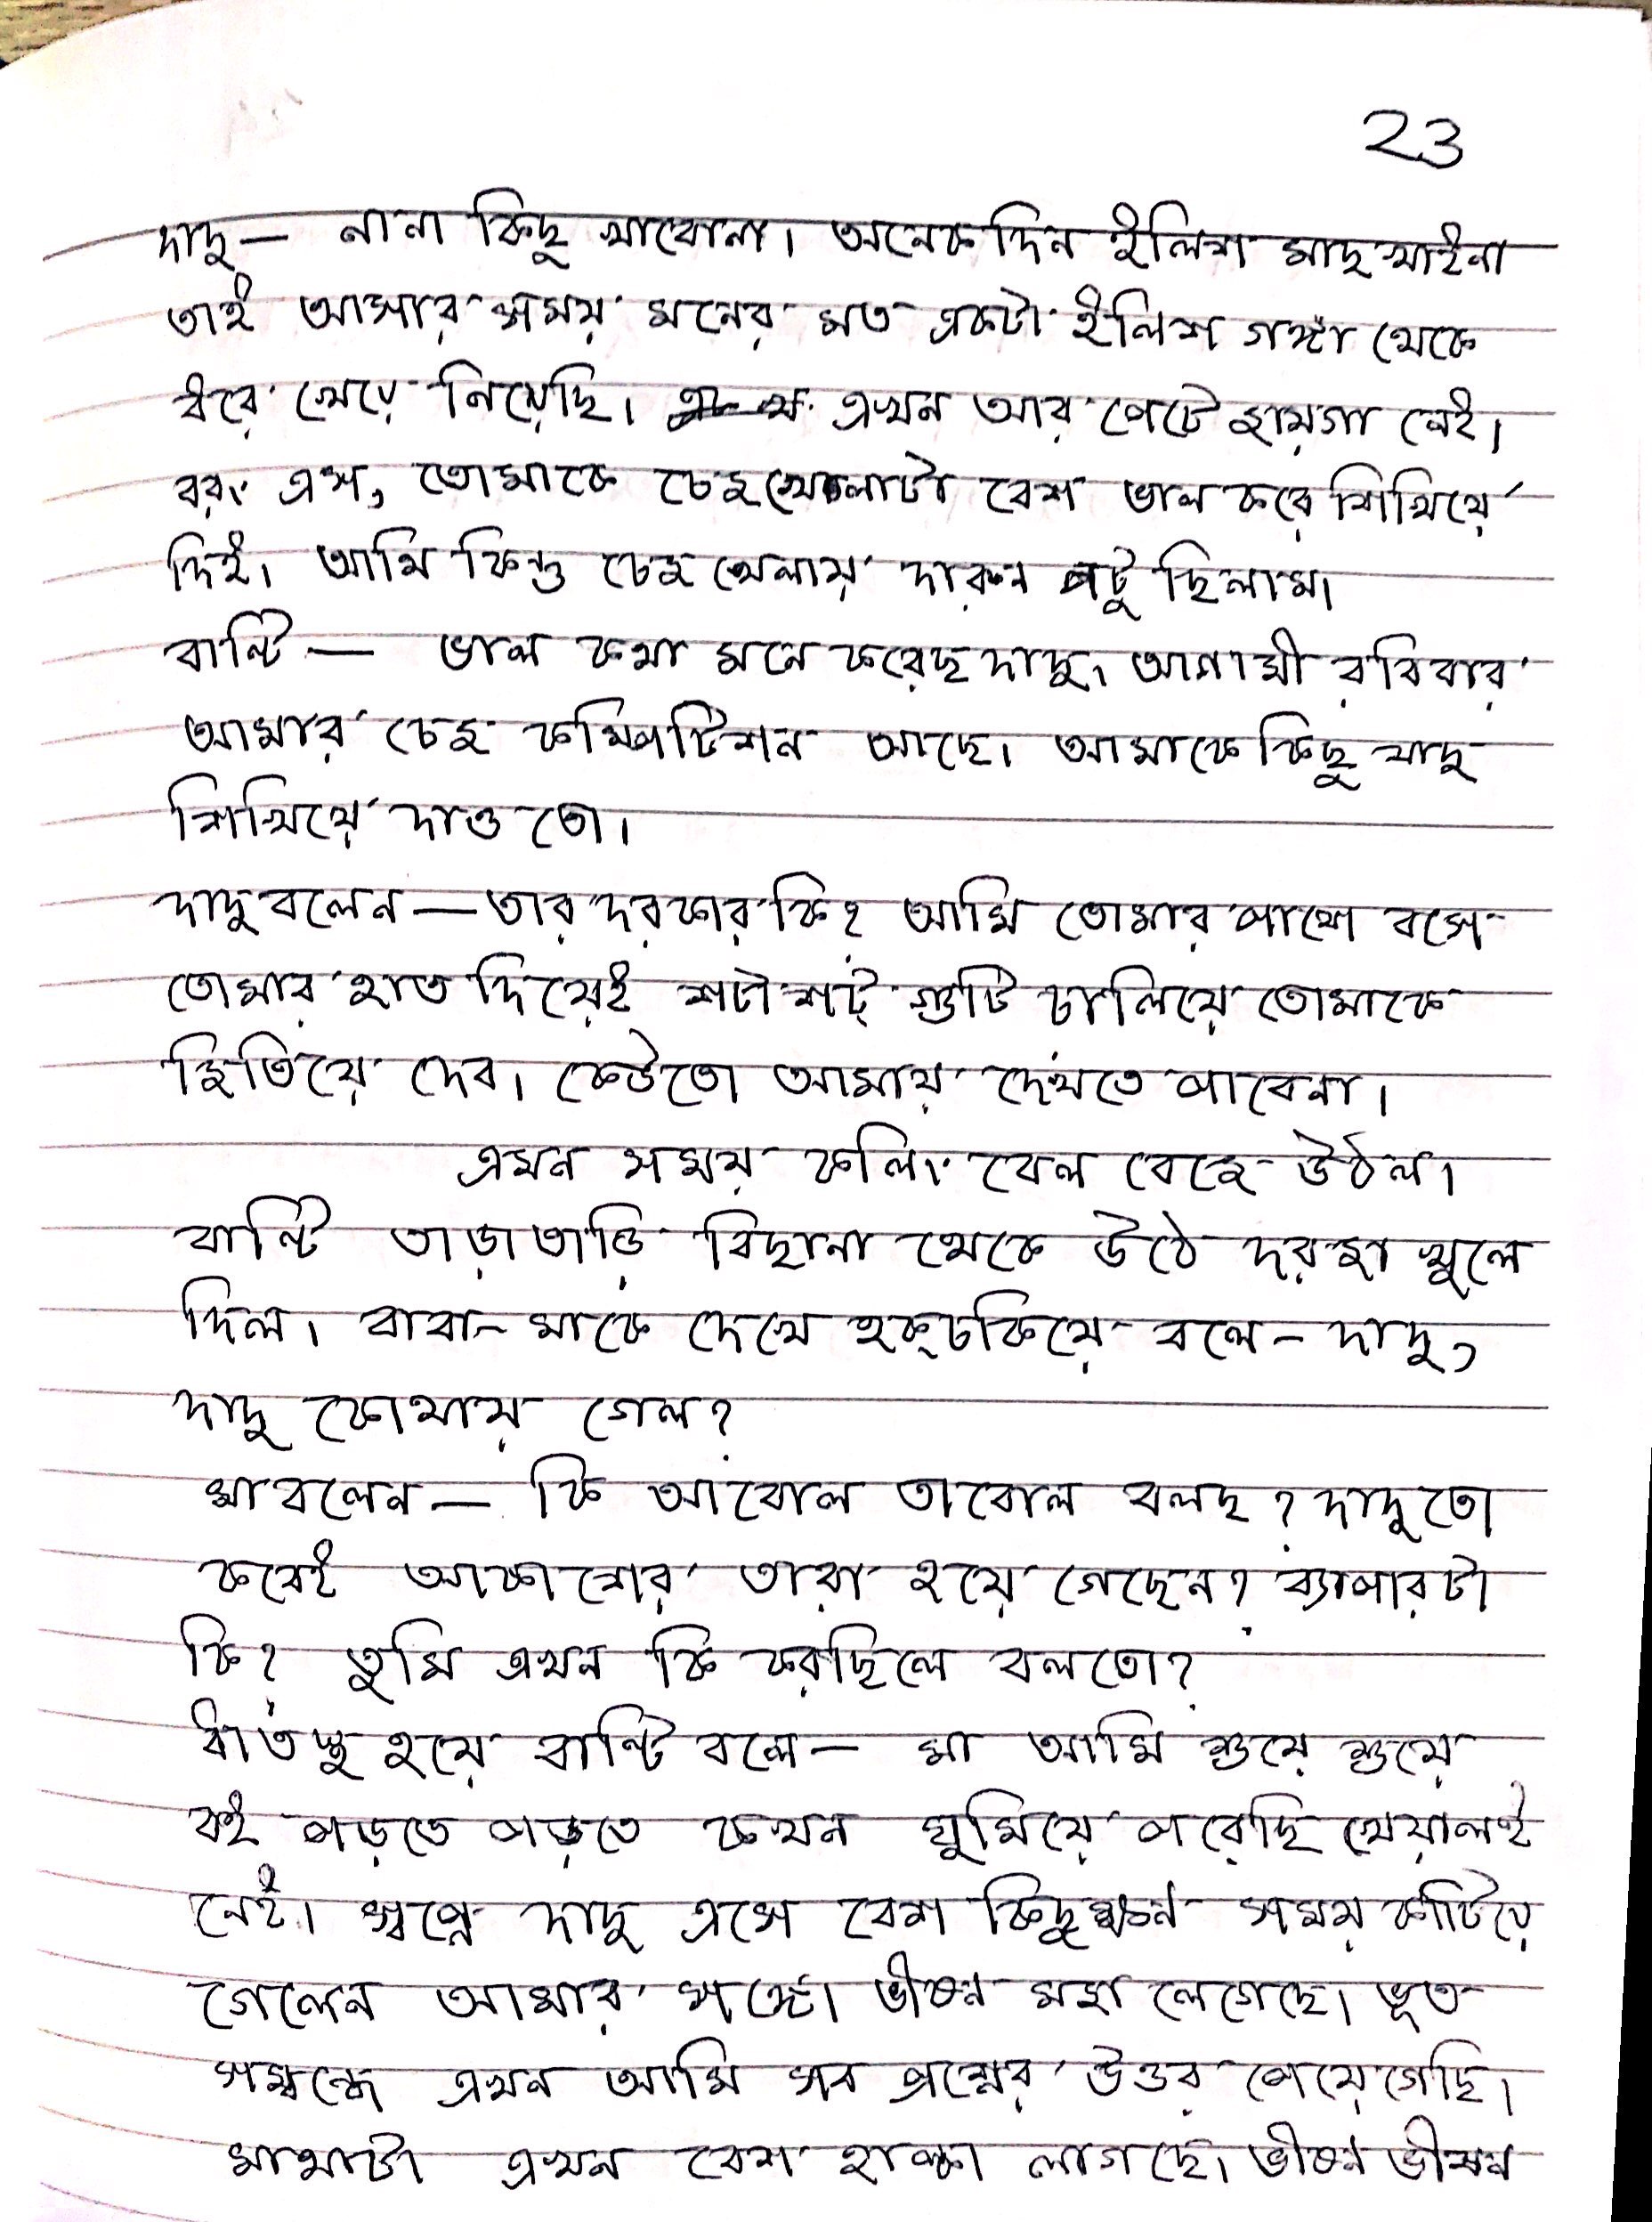 23
দাদু — নানা কিছু খাবোনা। অনেক দিন ইলিশ মাছ খাইনা
তাই আসার সময় মনের মত একটা ইলিশ গঙ্গা থেকে
ধরে খেয়ে নিয়েছি। এখন আর পেটে জায়গা নেই।
বরং এস, তোমাকে চেজ খেলাটা বেশ ভাল করে শিখিয়ে
দিই। আমি কিন্তু চেজ খেলায় দারুন পটু ছিলাম।
বান্টি — ভাল কথা মনে করেছ দাদু। আগামী রবিবার
আমার চেজ কম্পিটিশন আছে। আমাকে কিছু যাদু
শিখিয়ে দাও তো।
দাদু বলেন — তার দরকার কি? আমি তোমার পাশে বসে
তোমার হাত দিয়েই শটাশট্ গুটি চালিয়ে তোমাকে
জিতিয়ে দেব। কেউতো আমায় দেখতে পাবেনা।
এমন সময় কলিং বেল বেজে উঠল।
বান্টি তাড়াতাড়ি বিছানা থেকে উঠে দরজা খুলে
দিল। বাবা-মাকে দেখে হক্চকিয়ে বলে - দাদু,
দাদু কোথায় গেল?
মা বলেন — কি আবোল তাবোল বলছ? দাদুতো
কবেই আকাশের তারা হয়ে গেছেন? ব্যাপারটা
কি? তুমি এখন কি করছিলে বলতো?
ধাতস্থ হয়ে বান্টি বলে — মা আমি শুয়ে শুয়ে
বই পড়তে পড়তে কখন ঘুমিয়ে পরেছি খেয়ালই
নেই। স্বপ্নে দাদু এসে বেশ কিছুক্ষন সময় কাটিয়ে
গেলেন আমার সঙ্গে। ভীষন মজা লেগেছে। ভূত
সম্বন্ধে এখন আমি সব প্রশ্নের উত্তর পেয়ে গেছি।
মাথাটা এখন বেশ হাল্কা লাগছে। ভীষন ভীষন